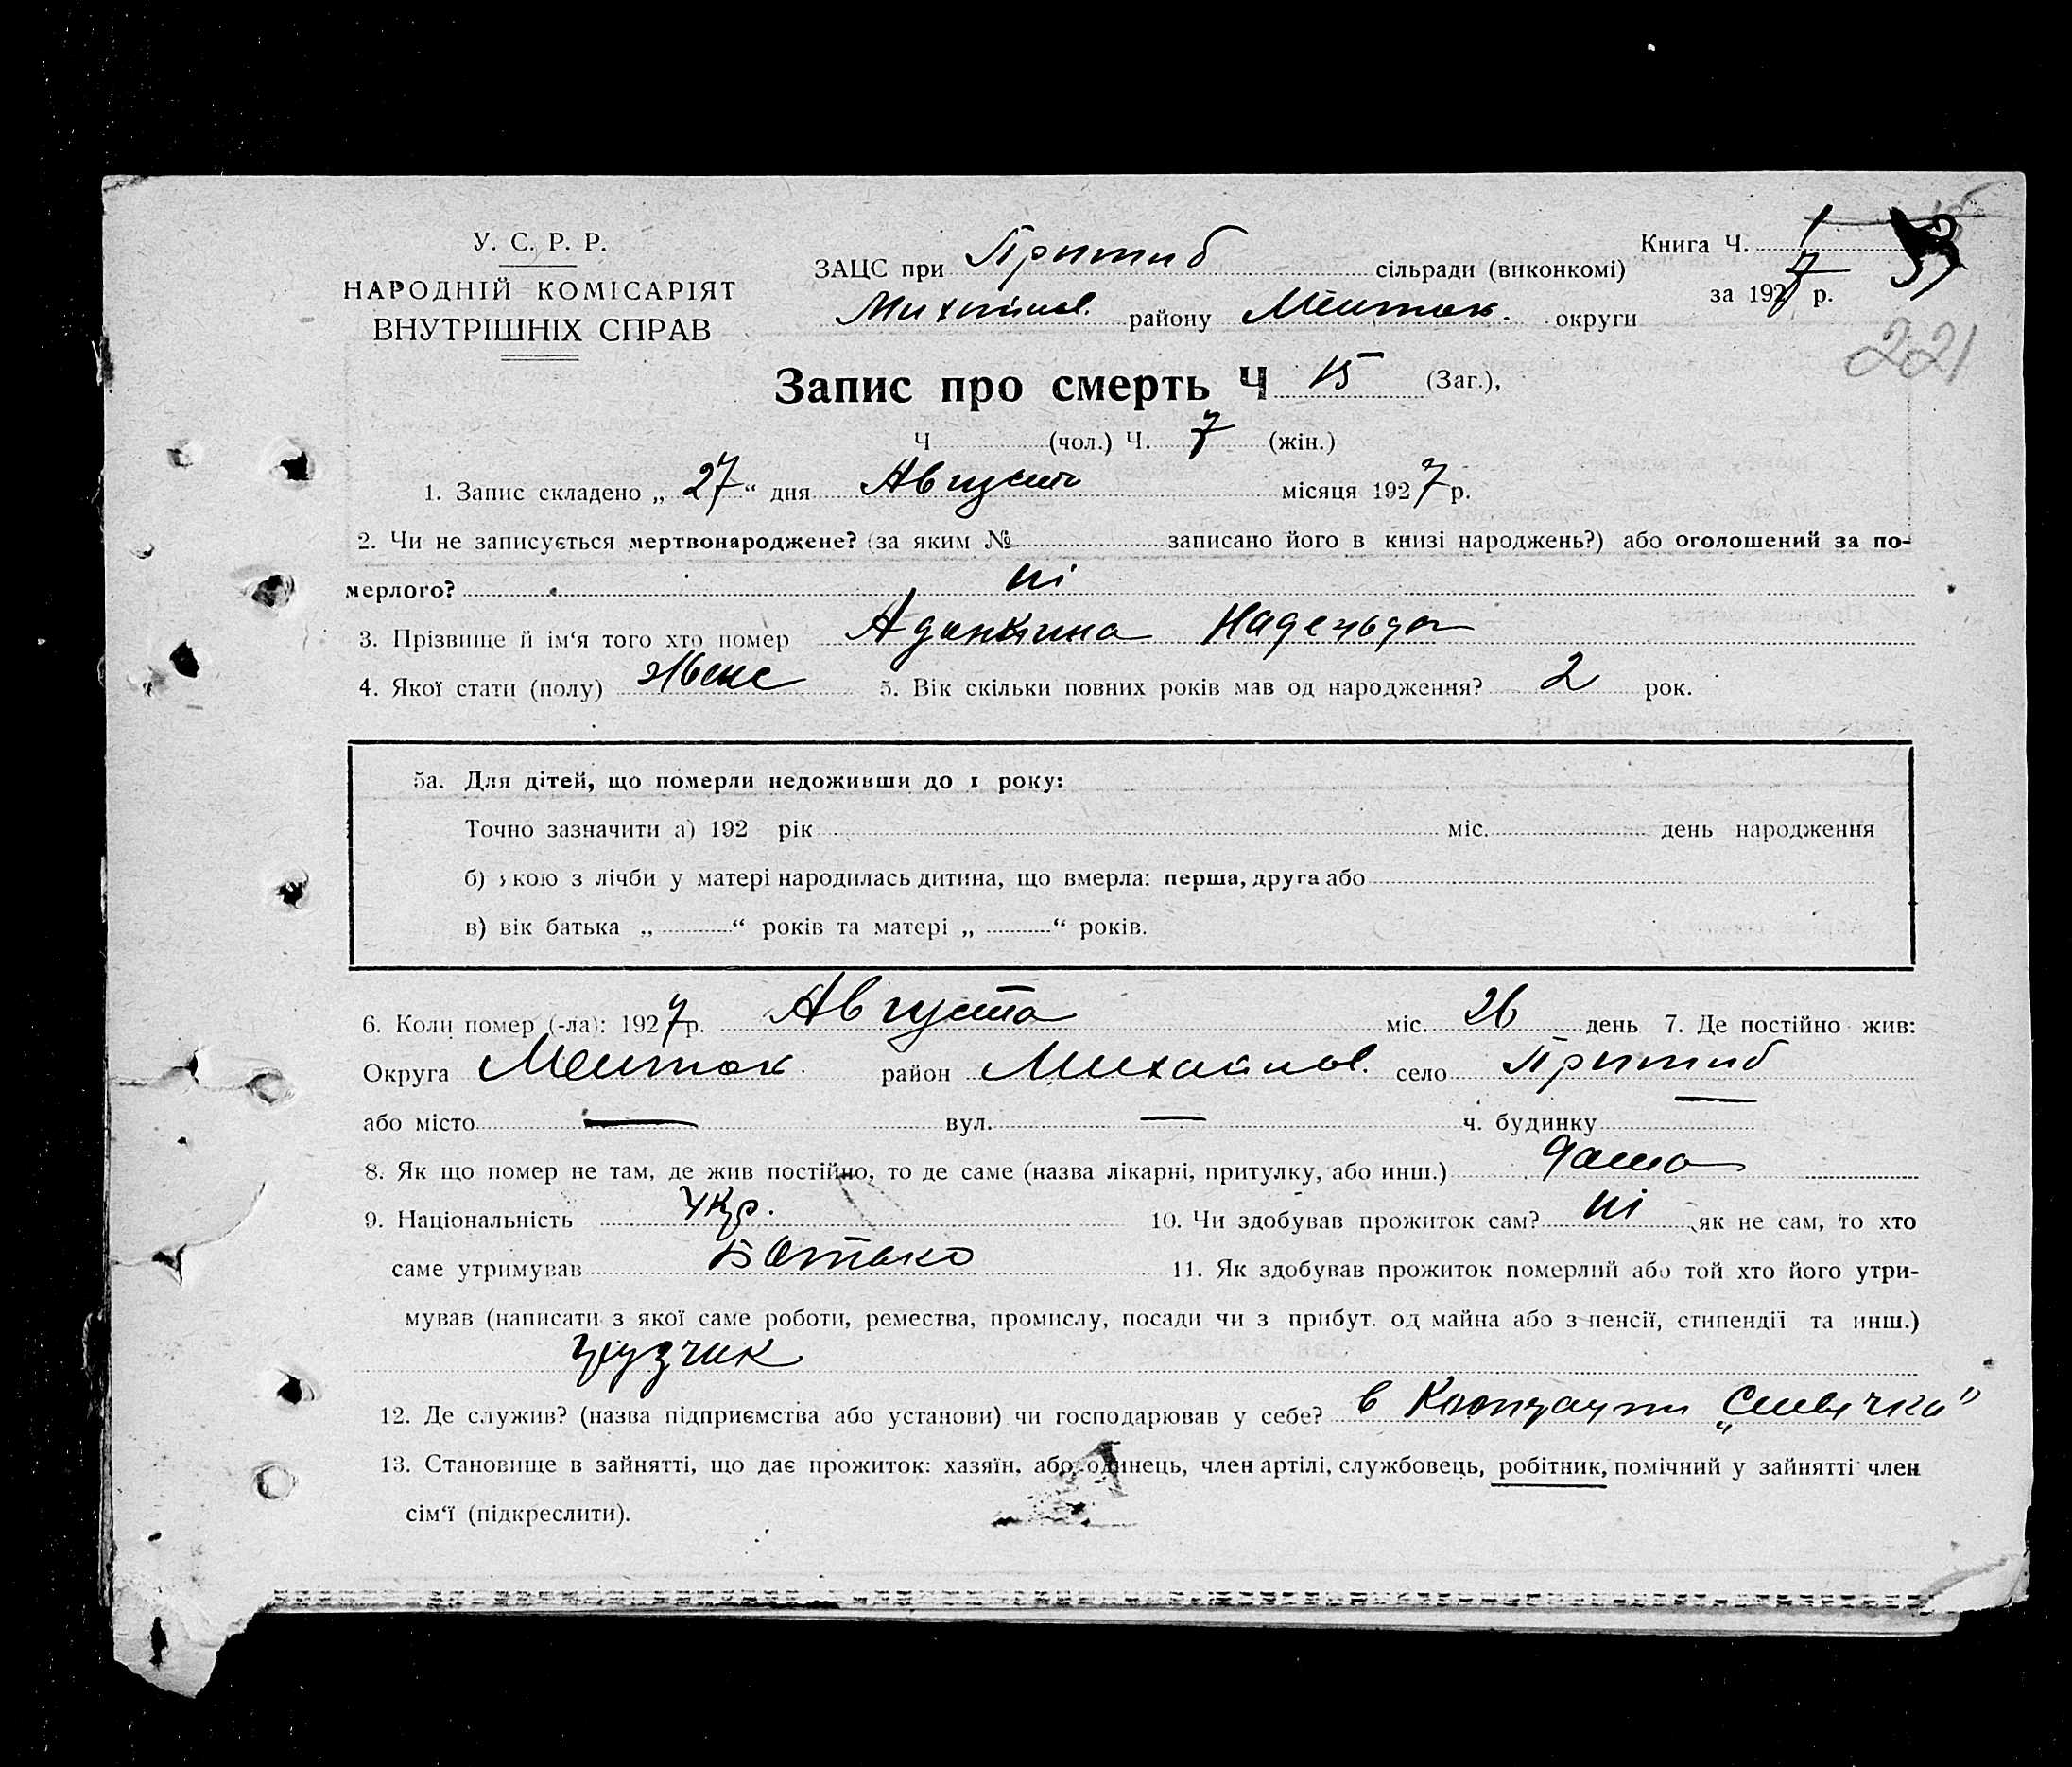 У. С. Р. Р.
НАРОДНІЙ КОМІСАРІЯТ
ВНУТРІШНІХ СПРАВ
ЗАЦС при Пришиб сільради (виконкомі)
Михайлов. району Мелитоп. округи
Книга Ч. 1
за 1927 р.
221
Запис про смерть Ч 15 (Заг.),
Ч (чол.) Ч. 7 (жін.)
1. Запис складено „ 27 “ дня Августа місяця 1927 р.
2. Чи не записується мертвонароджене? (за яким № записано його в книзі народжень?) або оголошений за по-
мерлого? ні
3. Прізвище й ім‘я того хто помер Надежда
4. Якої стати (полу) женс 5. Вік скільки повних років мав од народження? 2 рок.
5а. Для дітей, що померли недоживши до 1 року:
Точно зазначити а) 192 рік міс. день народження
б) якою з лічби у матері народилась дитина, що вмерла: перша, друга або
в) вік батька „ “ років та матері „ “ років.
6. Коли помер (-ла): 1927 р. Августа міс. 26 день 7. Де постійно жив:
Округа Мелитоп. район Михайлов. село Пришиб
або місто — вул. — ч. будинку —
8. Як що помер не там, де жив постійно, то де саме (назва лікарні, притулку, або инш.) дома
9. Національність Укр. 10. Чи здобував прожиток сам? ні як не сам, то хто
саме утримував Батько 11. Як здобував прожиток померлий або той хто його утри-
мував (написати з якої саме роботи, ремества, промислу, посади чи з прибут. од майна або з пенсії, стипендії та инш.)
грузчик
12. Де служив? (назва підприємства або установи) чи господарював у себе? в
13. Становище в зайнятті, що дає прожиток: хазяїн, або одинець, член артілі, службовець, робітник, помічний у зайнятті член
сім‘ї (підкреслити).